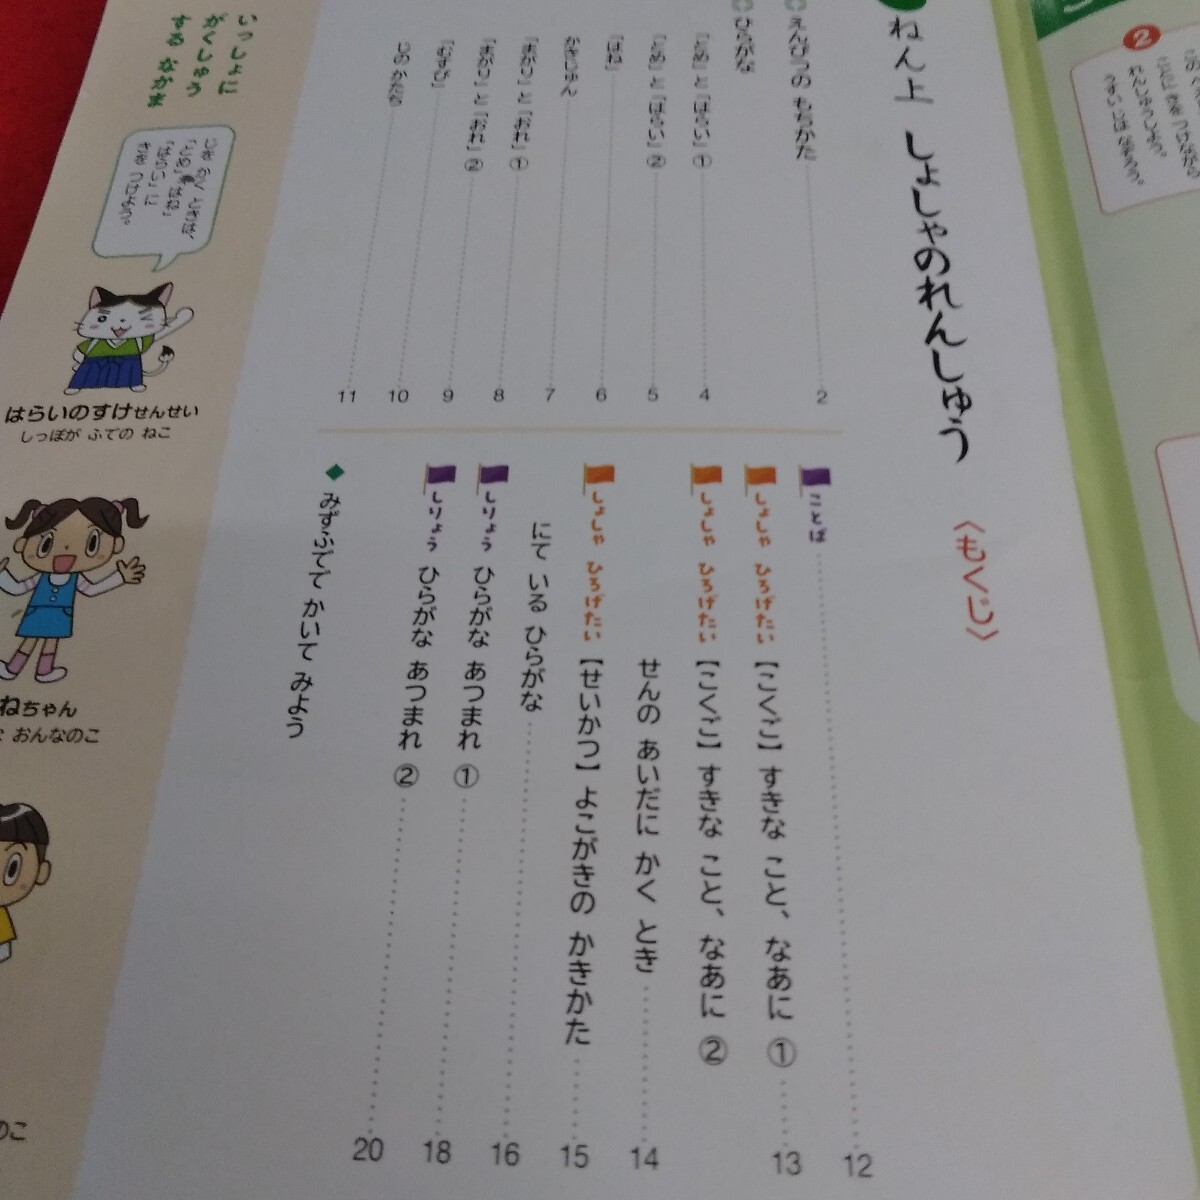 ねん上 しょしゃのれんしゅう
〈もくじ〉
えんぴつの もちかた 2
ひらがな
「とめ」と「はらい」① 4
「とめ」と「はらい」② 5
「はね」 6
かきじゅん 7
「まがり」と「おれ」① 8
「まがり」と「おれ」② 9
「むすび」 10
じの かたち 11
ことば 12
しょしゃ ひろげたい 【こくご】すきな こと、なあに ① 13
しょしゃ ひろげたい 【こくご】すきな こと、なあに ②
せんの あいだに かく とき 14
しょしゃ ひろげたい 【せいかつ】よこがきの かきかた 15
にて いる ひらがな 16
しりょう ひらがな あつまれ ① 18
しりょう ひらがな あつまれ ② 20
みずふでで かいて みよう
いっしょに
がくしゅう
する なかま
じを かく ときは、
「とめ」「はね」
「はらい」に
きを つけよう。
はらいのすけせんせい
しっぽが ふでの ねこ
ねちゃん
おんなのこ
のこ
2